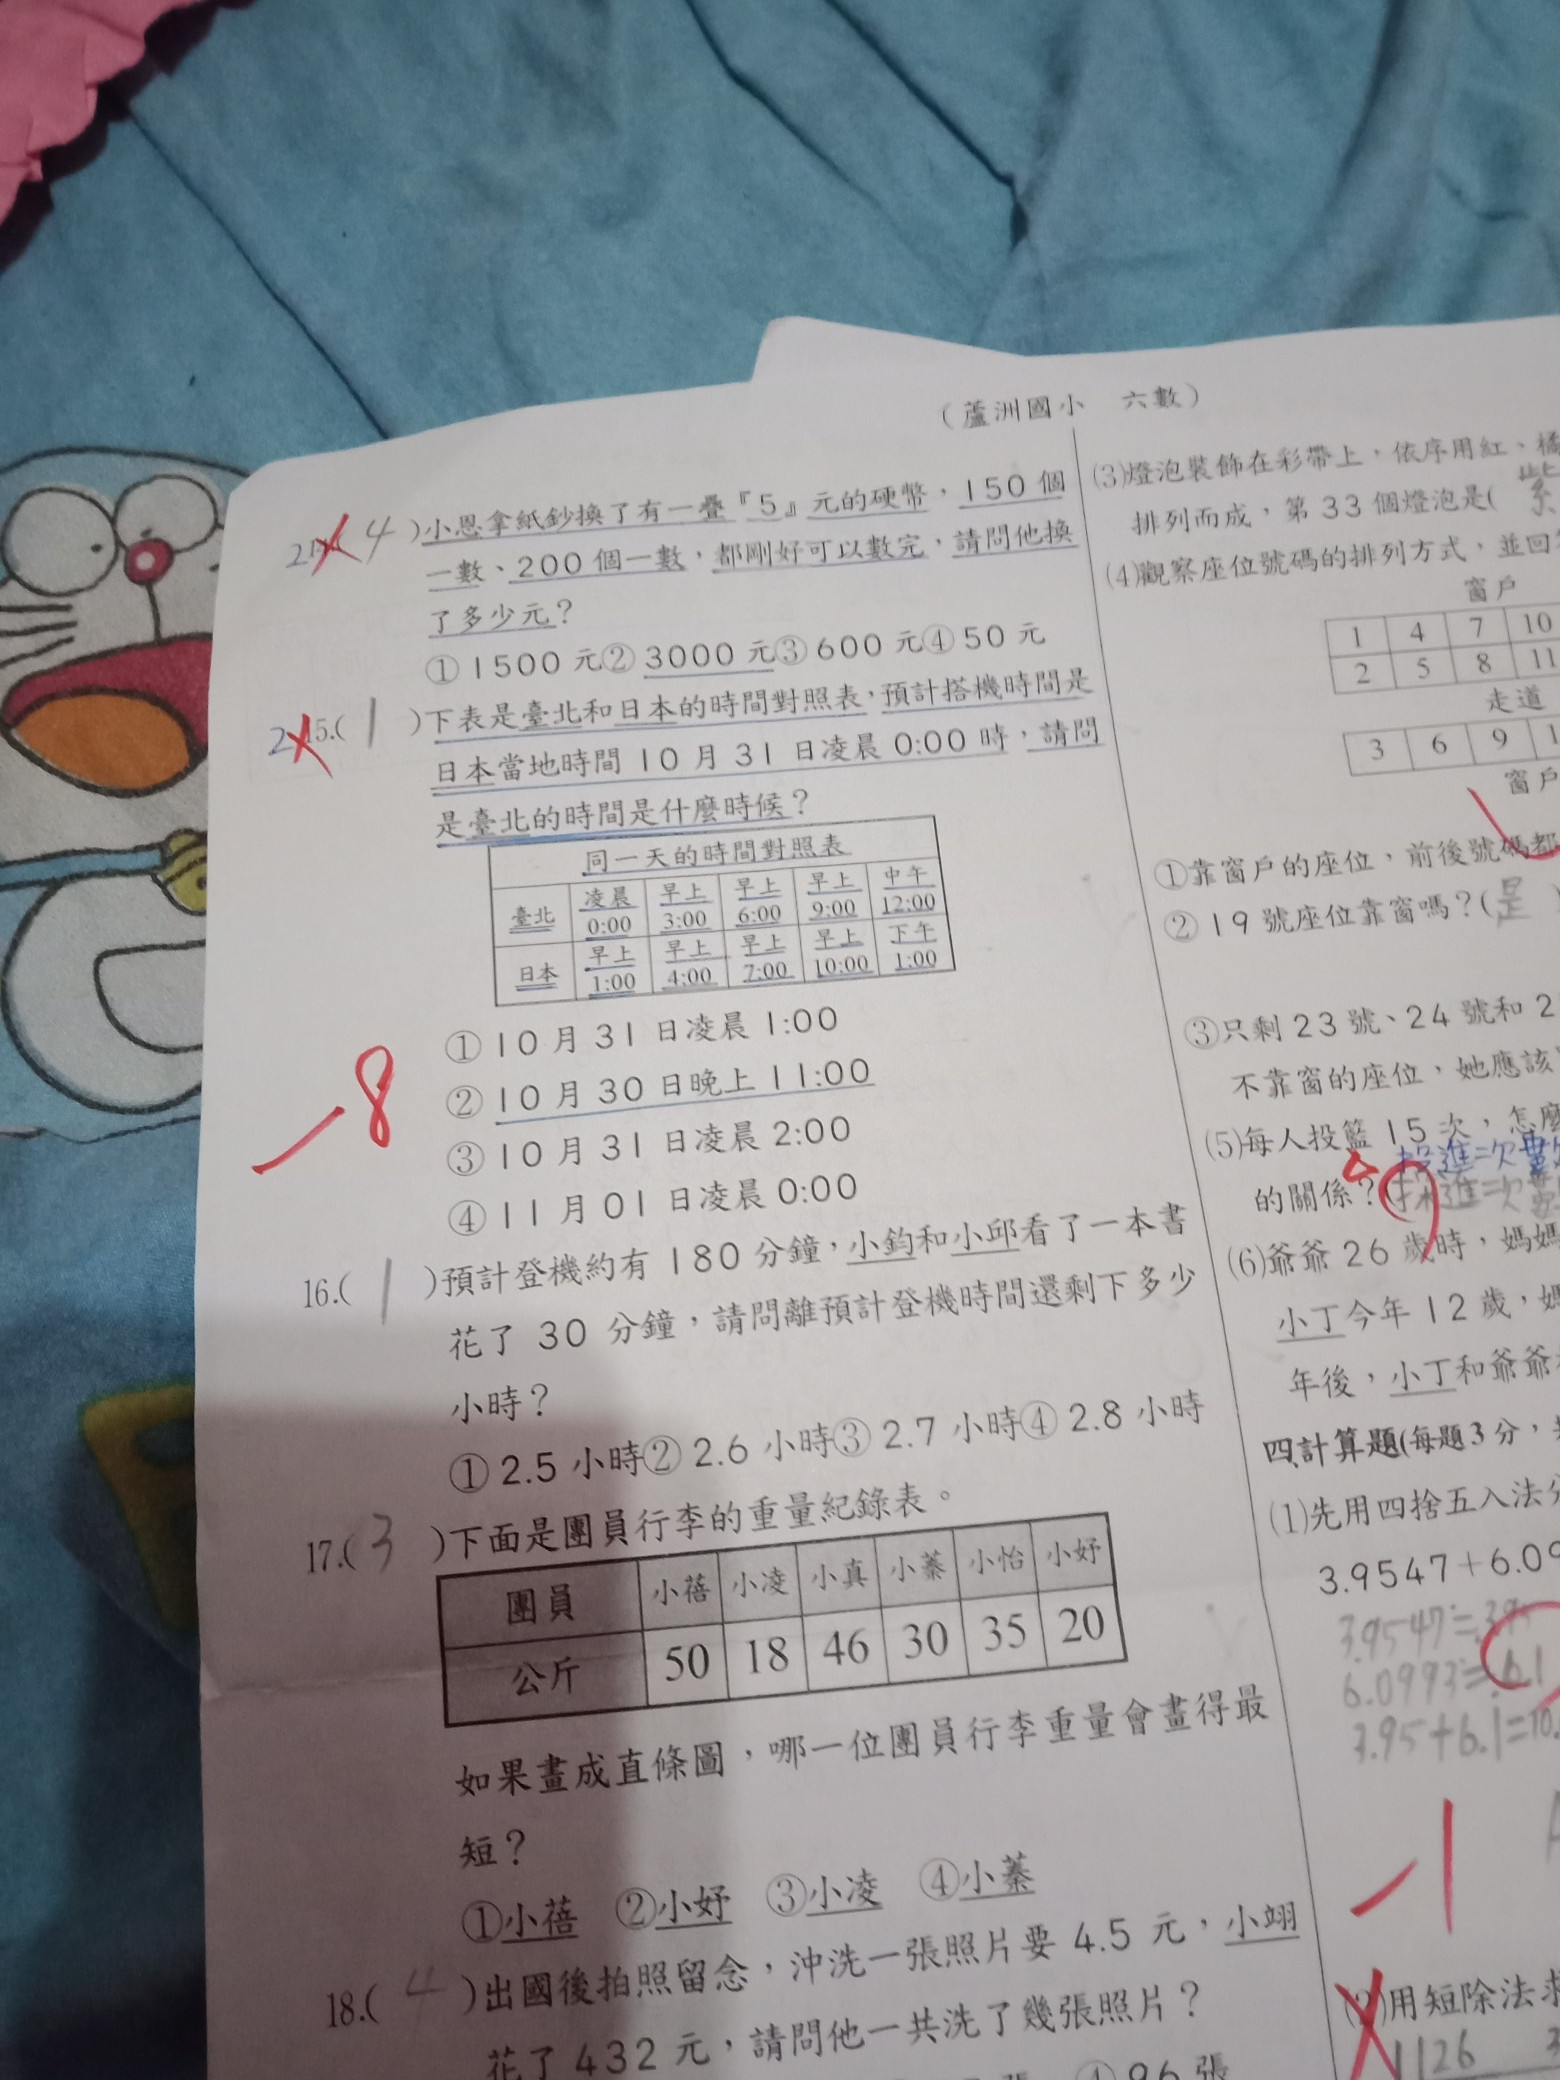 (蘆洲國小 六數)
2 4 )小恩拿紙鈔換了有一疊『5』元的硬幣，150個
一數、200個一數，都剛好可以數完，請問他換
了多少元？
①1500元②3000元③600元④50元
2 15.( 1 )下表是臺北和日本的時間對照表，預計搭機時間是
日本當地時間10月31日凌晨0:00時，請問
是臺北的時間是什麼時候？
同一天的時間對照表
臺北 凌晨0:00 早上3:00 早上6:00 早上9:00 中午12:00
日本 早上1:00 早上4:00 早上7:00 早上10:00 下午1:00
①10月31日凌晨1:00
②10月30日晚上11:00
③10月31日凌晨2:00
④11月01日凌晨0:00
-8
16.( 1 )預計登機約有180分鐘，小鈞和小邱看了一本書
花了30分鐘，請問離預計登機時間還剩下多少
小時？
①2.5小時②2.6小時③2.7小時④2.8小時
17.( 3 )下面是團員行李的重量紀錄表。
團員 小蓓 小凌 小真 小蓁 小怡 小妤
公斤 50 18 46 30 35 20
如果畫成直條圖，哪一位團員行李重量會畫得最
短？
①小蓓 ②小妤 ③小凌 ④小蓁
18.( 4 )出國後拍照留念，沖洗一張照片要4.5元，小翊
花了432元，請問他一共洗了幾張照片？
張 ④96張
(3)燈泡裝飾在彩帶上，依序用紅、橘
排列而成，第33個燈泡是( 紫
(4)觀察座位號碼的排列方式，並回
窗戶
1 4 7 10
2 5 8 11
走道
3 6 9 1
窗戶
①靠窗戶的座位，前後號碼都
②19號座位靠窗嗎？( 是 )
③只剩23號、24號和2
不靠窗的座位，她應該
(5)每人投籃15次，怎麼
投進=次
的關係？(
(6)爺爺26歲時，媽媽
小丁今年12歲，媽
年後，小丁和爺爺
四.計算題(每題3分，
(1)先用四捨五入法
3.9547+6.09
3.9547≒3.95
6.0993≒6.1
3.95+6.1=10.
-1
(2)用短除法求
126